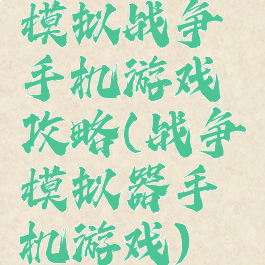 模拟战争
手机游戏
攻略(战争
模拟器手
机游戏)